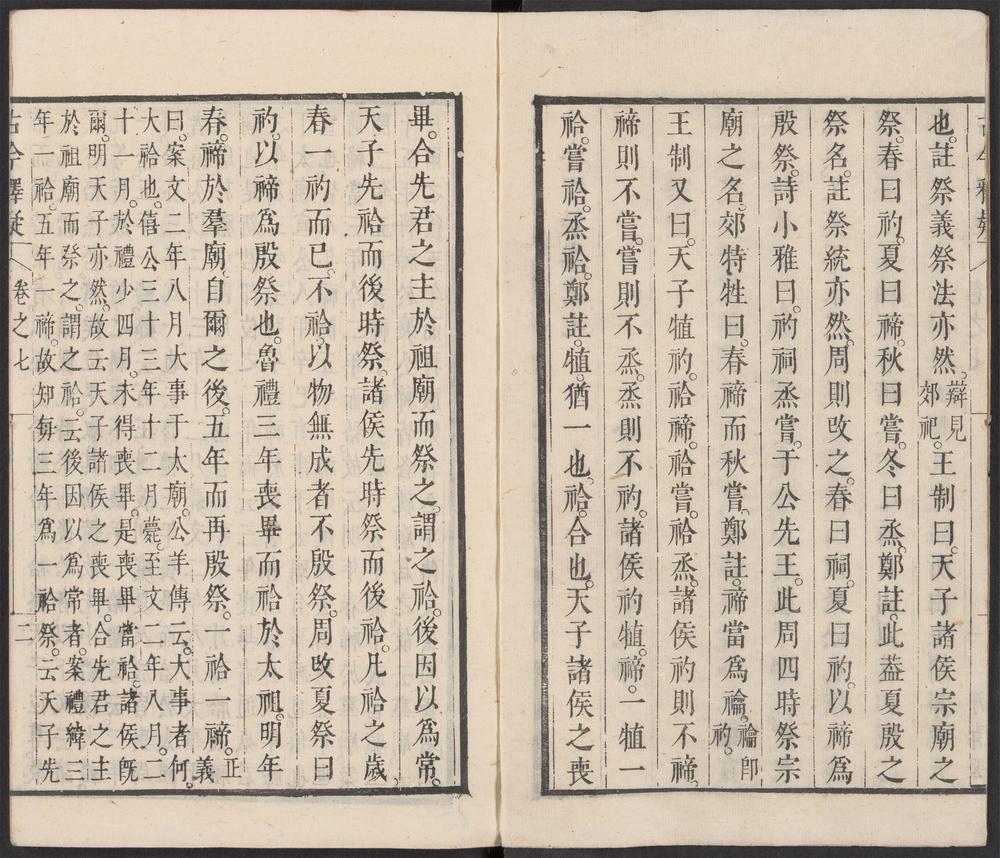 也。註祭義祭法亦然。辯見郊祀。王制曰。天子諸侯宗廟之
祭。春曰礿。夏曰禘。秋曰嘗。冬曰烝。鄭註。此葢夏殷之
祭名。註祭統亦然。周則改之。春曰祠。夏曰礿。以禘爲
殷祭。詩小雅曰。礿祠烝嘗。于公先王。此周四時祭宗
廟之名。郊特牲曰。春禘而秋嘗。鄭註。禘當爲禴。禴卽礿。
王制又曰。天子犆礿。祫禘。祫嘗。祫烝。諸侯礿則不禘。
禘則不嘗。嘗則不烝。烝則不礿。諸侯礿犆。禘。一犆一
祫。嘗祫。烝祫。鄭註。犆。猶一也。祫。合也。天子諸侯之喪
畢。合先君之主於祖廟而祭之。謂之祫。後因以爲常。
天子先祫而後時祭。諸侯先時祭而後祫。凡祫之歲。
春一礿而已。不祫。以物無成者不殷祭。周改夏祭曰
礿。以禘爲殷祭也。魯禮三年喪畢而祫於太祖。明年
春。禘於羣廟。自爾之後。五年而再殷祭。一祫一禘。正義
曰。案文二年八月大事于太廟。公羊傳云。大事者何。
大祫也。僖公三十三年十二月薨。至文二年八月。二
十一月。於禮少四月。未得喪畢。是喪畢當祫。諸侯旣
爾。明天子亦然。故云天子諸侯之喪畢。合先君之主
於祖廟而祭之。謂之祫。云後因以爲常者。案禮緯三
年一祫。五年一禘。故知每三年爲一祫祭。云天子先
古今釋疑 卷之七 二